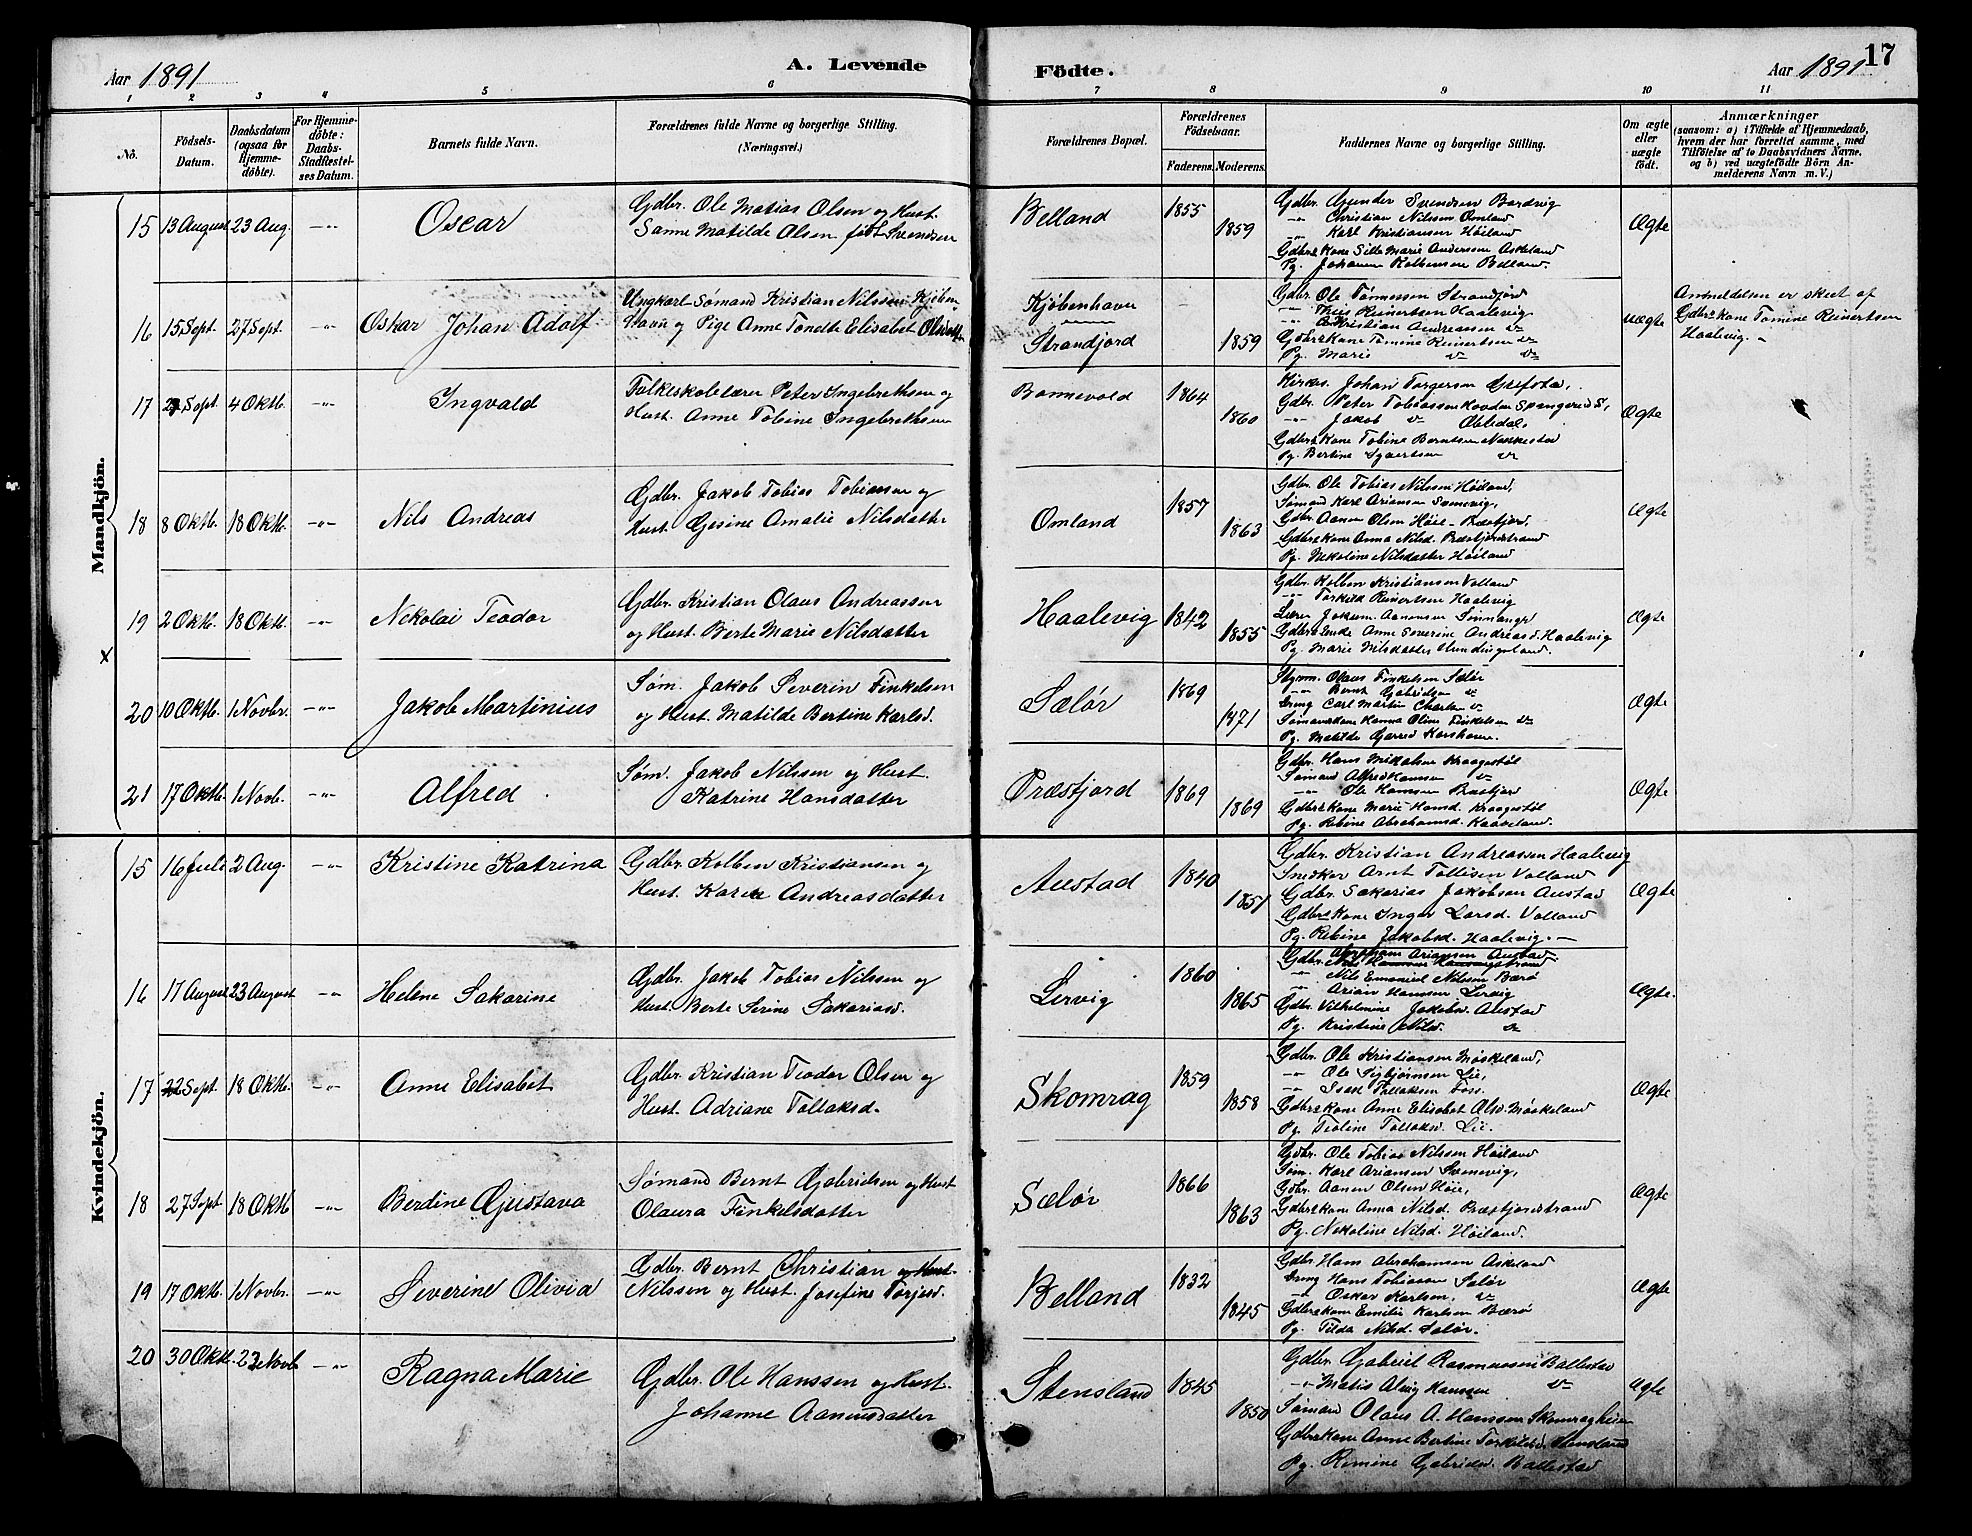 Aar 1891
A. Levende
Födte.
Aar 1891
17
1 2 3 4 5 6 7 8 9 10 11
No.
Födsels-Datum.
Daabsdatum (ogsaa for Hjemmedöbte).
For Hjemmedöbte: Daabs-Stadfæstelses Datum.
Barnets fulde Navn.
Forældrenes fulde Navne og borgerlige Stilling.
(Næringsvei.)
Forældrenes Bopæl.
Forældrenes Födselsaar.
Faderens. Moderens.
Faddernes Navne og borgerlige Stilling.
Om ægte eller uægte födt.
Anmærkninger
(saasom: a) i Tilfælde af Hjemmedaab,
hvem der har forrettet samme, med
Tilföielse af to Daabsvidners Navne,
og b) ved uægtefödte Börn Anmelderens Navn m. V.)
Mandkjön.
15 13 August 23 Aug. -"- Oscar
Gdbr. Ole Matias Olsen og Hust.
Sanne Matilde Olsen født Svendsen
Belland 1855 1859
Gdbr. Gunder Svendsen Bardvig
-"- Christian Nilssen Omland
-"- Karl Kristiansen Høiland
Gdbrs Kone Sille Marie Andersen Askeland
Pg. Johanne Kolbensen Belland.
Ægte
16 15 Sept. 27 Sept. -"- Oskar Johan Adolf
Ungkarl Sømand Kristian Nilssen Kjøben
havn og Pige Anne Tondte Elisabet
Kjøbenhavn -
Strandfjord 1859
Gdbr. Ole Tønnessen Strandfjord
-"- Theis Reinertsen Haalevig
Kristian Andreassen do
Gdbrs Kone Tomine Reinertsen do
Pg. Marie do do
uægte
Anmeldelsen er skeet af
Gdbrs Kone Tomine Reinertsen
Haalevig.
17 Sept. 4 Oktb. -"- Ingvald
Folkeskolelærer Peter Ingebrethsen og
Hust. Anne Tobine Ingebrethsen
Bannevold 1864 1860
Kirkes. Johan Torgersen
Gdbr. Peter Tobiassen Hovden Spangereid S.,
-"- Jakob do
Gdbrs Kone Tobine Berntsen
Pg. Bertine do
Ægte
18 8 Oktb. 18 Oktb. -"- Nils Andreas
Gdbr. Jakob Tobias Tobiassen og
Hust. Gesine Amalie Nilsdatter
Omland 1857 1863
Gdbr. Ole Tobias Nilssen Høiland,
Sømand Karl Ariansen Svennevig,
Gdbr. Aanen Olsen Høie - Præstfjord,
Gdbrs Kone Anna Nilsd. Præstfjordstrand
Pg. Nekoline Nilsdatter Høiland
Ægte
19 2 Oktb. 18 Oktb. -"- Nekolai Teodor
Gdbr. Kristian Olaus Andreassen
og Hust. Berte Marie Nilsdatter
Haalevig 1842 1855
Gdbr. Kolben Kristiansen Valland
-"- Torkild Reinertsen Haalevig
Lærer Jokum Aanensen
Gdbrs Enke Anne Severine Andreasd. Haalevig
Pg. Marie Nilsdatter
Ægte
20 10 Oktb. 1 Novbr. -"- Jakob Martinius
Søm. Jakob Severin Finkelsen
og Hust. Matilde Bertine Karlsd.
Sælør 1869 1871
Styrm. Olaus Finkelsen Sælør
-"- Bernt Gabrielsen do
Dreng Carl Martin Charlsen do
Sømandskone Hanna Oline Finkelsen do
Pg. Matilde Gjerred Korshavn.
Ægte
21 17 Oktb. 1 Novb. -"- Alfred
Søm. Jakob Nilssen og Hust.
Katrine Hansdatter
Præstfjord 1869 1869
Gdbr. Hans Mikalsen Kraagestøl
Sømand Alfred Hanssen do
-"- Ole Hanssen
Gdbrs Kone Marie Hansd. Kraagestøl
Pg. Rebine Abrahamsd. Kaaveland.
Ægte
Kvindekjön.
15 16 Juli 2 Aug. -"- Kristine Katrina
Gdbr. Kolben Kristiansen og
Hust. Karen Andreasdatter
Austad 1840 1851
Gdbr. Kristian Andreassen Haalevig
Snedker Arnt Tollisen Valland
Gdbr. Sakarias Jakobsen Austad
Gdbrs Kone Inger Larsd. Valland
Pg. Rebine Jakobsd. Haalevig. -
Ægte
16 17 August 23 August -"- Helene Sakarine
Gdbr. Jakob Tobias Nilssen og
Hust. Berte Serine Sakariasd.
Lervig 1860 1865
Abraham Ariansen Austad
Gdbr.
-"- Nils Emanuel Nilssen Bærø
-"- Arian Hanssen Lervig
Gdbr. Vilhelmine Jakobsd. Austad
Pg. Kristine Nilsd. do
Ægte.
17 22 Sept. 18 Oktb. -"- Anne Elisabet
Gdbr. Kristian Teodor Olsen og
Hust. Adriane Tollaksd.
Skomrag 1859 1858
Gdbr. Ole Kristiansen Møskeland,
-"- Ole Sigbjørnsen Lie,
-"- Isak Tollaksen Foss.
Gdbrs Kone Anne Elisabet Olsd. Møskeland
Pg. Teoline Tollaksd. Lie.
Ægte
18 27 Sept 18 Oktb -"- Berdine Gjustava
Sømand Bernt Gabrielsen og Hust
Olaura Finkelsdatter
Sælør 1866 1863
Gdbr. Ole Tobias Nilssen Høiland
Søm. Karl Ariansen Svennevig,
Gdbr. Aanen Olsen Høie,
Gdbrs Kone Anna Nilsd. Præstfjordstrand
Pg. Nekoline Nilsd. Høiland.
Ægte
19 17 Oktb. 1 Novbr. -"- Severine Olivia
Gdbr. Bernt Christian og Hust.
Nilssen og Hust. Josefine Torjusd.
Belland 1832 1845
Gdbr. Hans Abrahamsen Askeland
Dreng Hans Tobiassen Sælør
-"- Oskar Karlsen, do
Gdbrs Kone Emilie Karlsen Bærø
Pg. Tilda Nilsd. Sælør.
Ægte
20 30 Oktb. 22 Novb. -"- Ragna Marie
Gdbr. Ole Hanssen og Hust.
Johanne Aanensdatter
Stensland 1845 1850
Gdbr. Gabriel Rasmussen Ballestad
-"- Matis Alvig Hanssen do
Sømand Olaus A. Hanssen Skomragheien
Gdbrs Kone Anne Bertine Torkildsd. Stensland
Pg. Remine Gabrielsd. Ballestad
Ægte